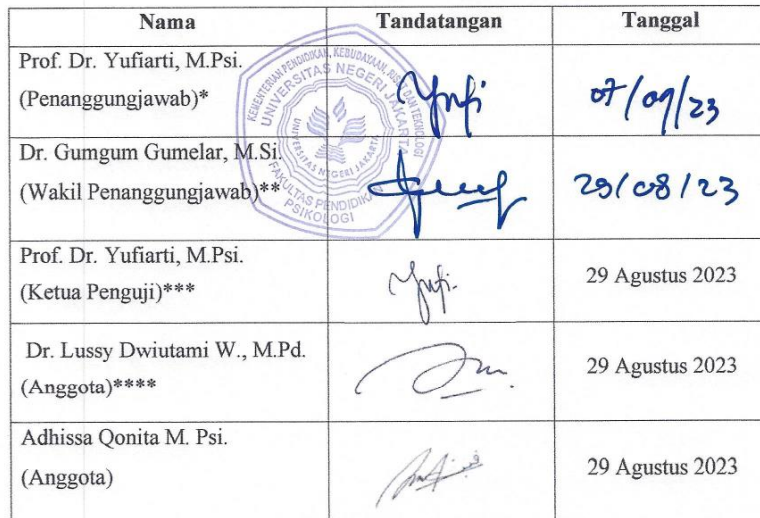 Nama Tandatangan Tanggal
Prof. Dr. Yufiarti, M.Psi.
(Penanggungjawab)* Yufi 07/09/23
Dr. Gumgum Gumelar, M.Si.
(Wakil Penanggungjawab)** 29/08/23
Prof. Dr. Yufiarti, M.Psi.
(Ketua Penguji)*** Yufi. 29 Agustus 2023
Dr. Lussy Dwiutami W., M.Pd.
(Anggota)**** 29 Agustus 2023
Adhissa Qonita M. Psi.
(Anggota) 29 Agustus 2023
KEMENTERIAN PENDIDIKAN, KEBUDAYAAN, RISET DAN TEKNOLOGI
UNIVERSITAS NEGERI JAKARTA
UNIVERSITAS NEGERI JAKARTA
FAKULTAS PENDIDIKAN
PSIKOLOGI